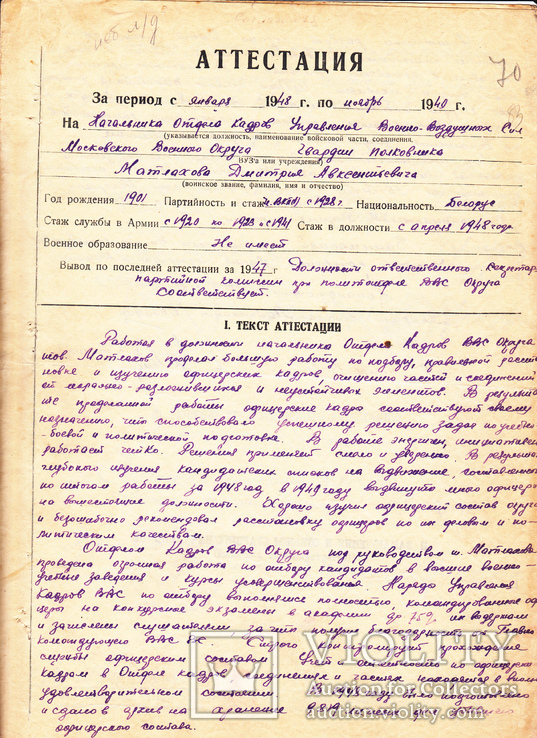 70
АТТЕСТАЦИЯ
За период с января 1948 г. по ноябрь 1940 г.
На Начальника Отдела Кадров Управления Военно-Воздушных Сил
(указывается должность, наименование войсковой части, соединения,
Московского Военного Округа Гвардии полковника
ВУЗ'а или учреждения)
Матлахова Дмитрия Авксентьевича
(воинское звание, фамилия, имя и отчество)
Год рождения 1901 Партийность и стаж ВКП(б) с 1928 г. Национальность Белорус
Стаж службы в Армии с 1920 по 1923 и с 1941 Стаж в должности с апреля 1948 года
Военное образование Не имеет
Вывод по последней аттестации за 1947 г Должности ответственного секретар
партийной комиссии при политотделе ВВС Округа
соответствует.
I. ТЕКСТ АТТЕСТАЦИИ
Работая в должности начальника Отдела Кадров ВВС Округа
тов. Матлахов проделал большую работу по подбору, правильной расста
новке и изучению офицерских кадров, очищению частей и соединений
от морально-разложившихся и неустойчивых элементов. В результа
те проделанной работы офицерские кадры соответствуют своему
назначению, что способствовало успешному решению задач по учебно
боевой и политической подготовке. В работе энергичен, инициативен
работает чётко. Решения принимает смело и уверенно. В результате
глубокого изучения кандидатских списков на выдвижение, составленных
по итогам работы за 1948 год в 1949 году выдвинуто много офицеров
на вышестоящие должности. Хорошо изучил офицерский состав округа
и безошибочно рекомендовал расстановку офицеров по их деловым и по-
литическим качествам.
Отделом Кадров ВВС Округа под руководством т. Матлахова
проведена огромная работа по отбору кандидатов в высшие военно-
учебные заведения и курсы усовершенствования. Наряды Управления
Кадров ВВС по отбору выполнялись полностью, командированные офи
церы на конкурсные экзамены в академии до 75% их выдержали
и зачислены слушателями за что получил благодарность Главно
командующего ВВС ВС. Строго контролирует прохождение
службы офицерским составом. Учет и отчетность по офицерским
кадрам в Отделе кадров соединениях и частях находятся в
удовлетворительном состоянии. В 1948 году было подготовлено
и сдано в архив на хранение личных дел
офицерского состава.
VIOLITY
Auction for Collectors
auction.violity.com